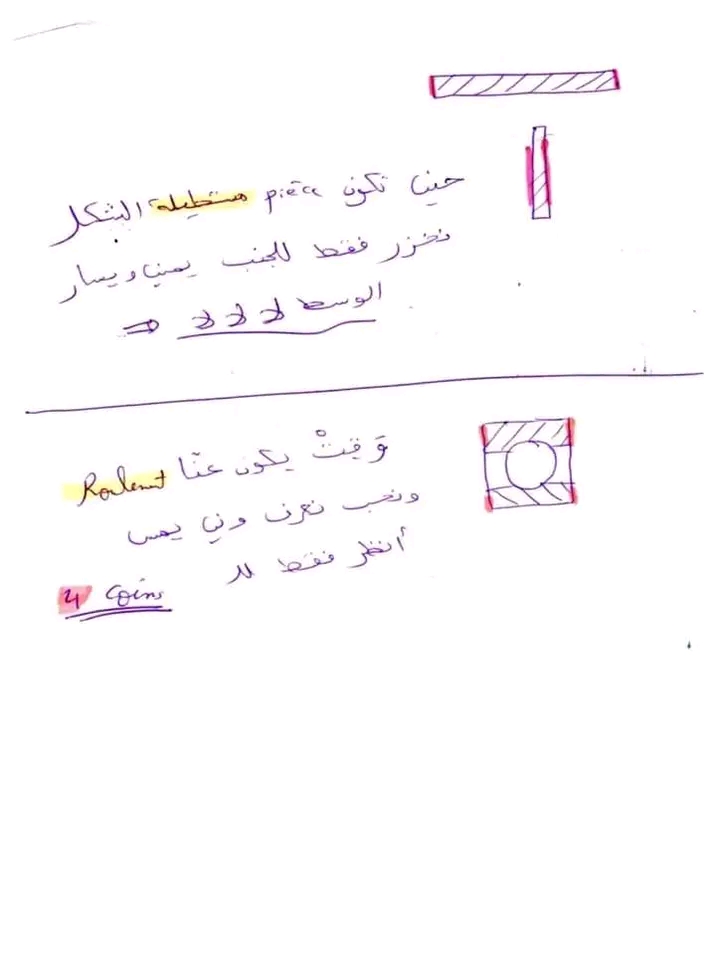 حينما تكون pièce مستطيلة الشكل
نخزر فقط للجنب يمينا ويسار
الوسط لا لا لا ⇒
وَقِتْ يكون عنّا Roulement
ونحب نعرف وين يمس
أنظر فقط للـ
4 Coins